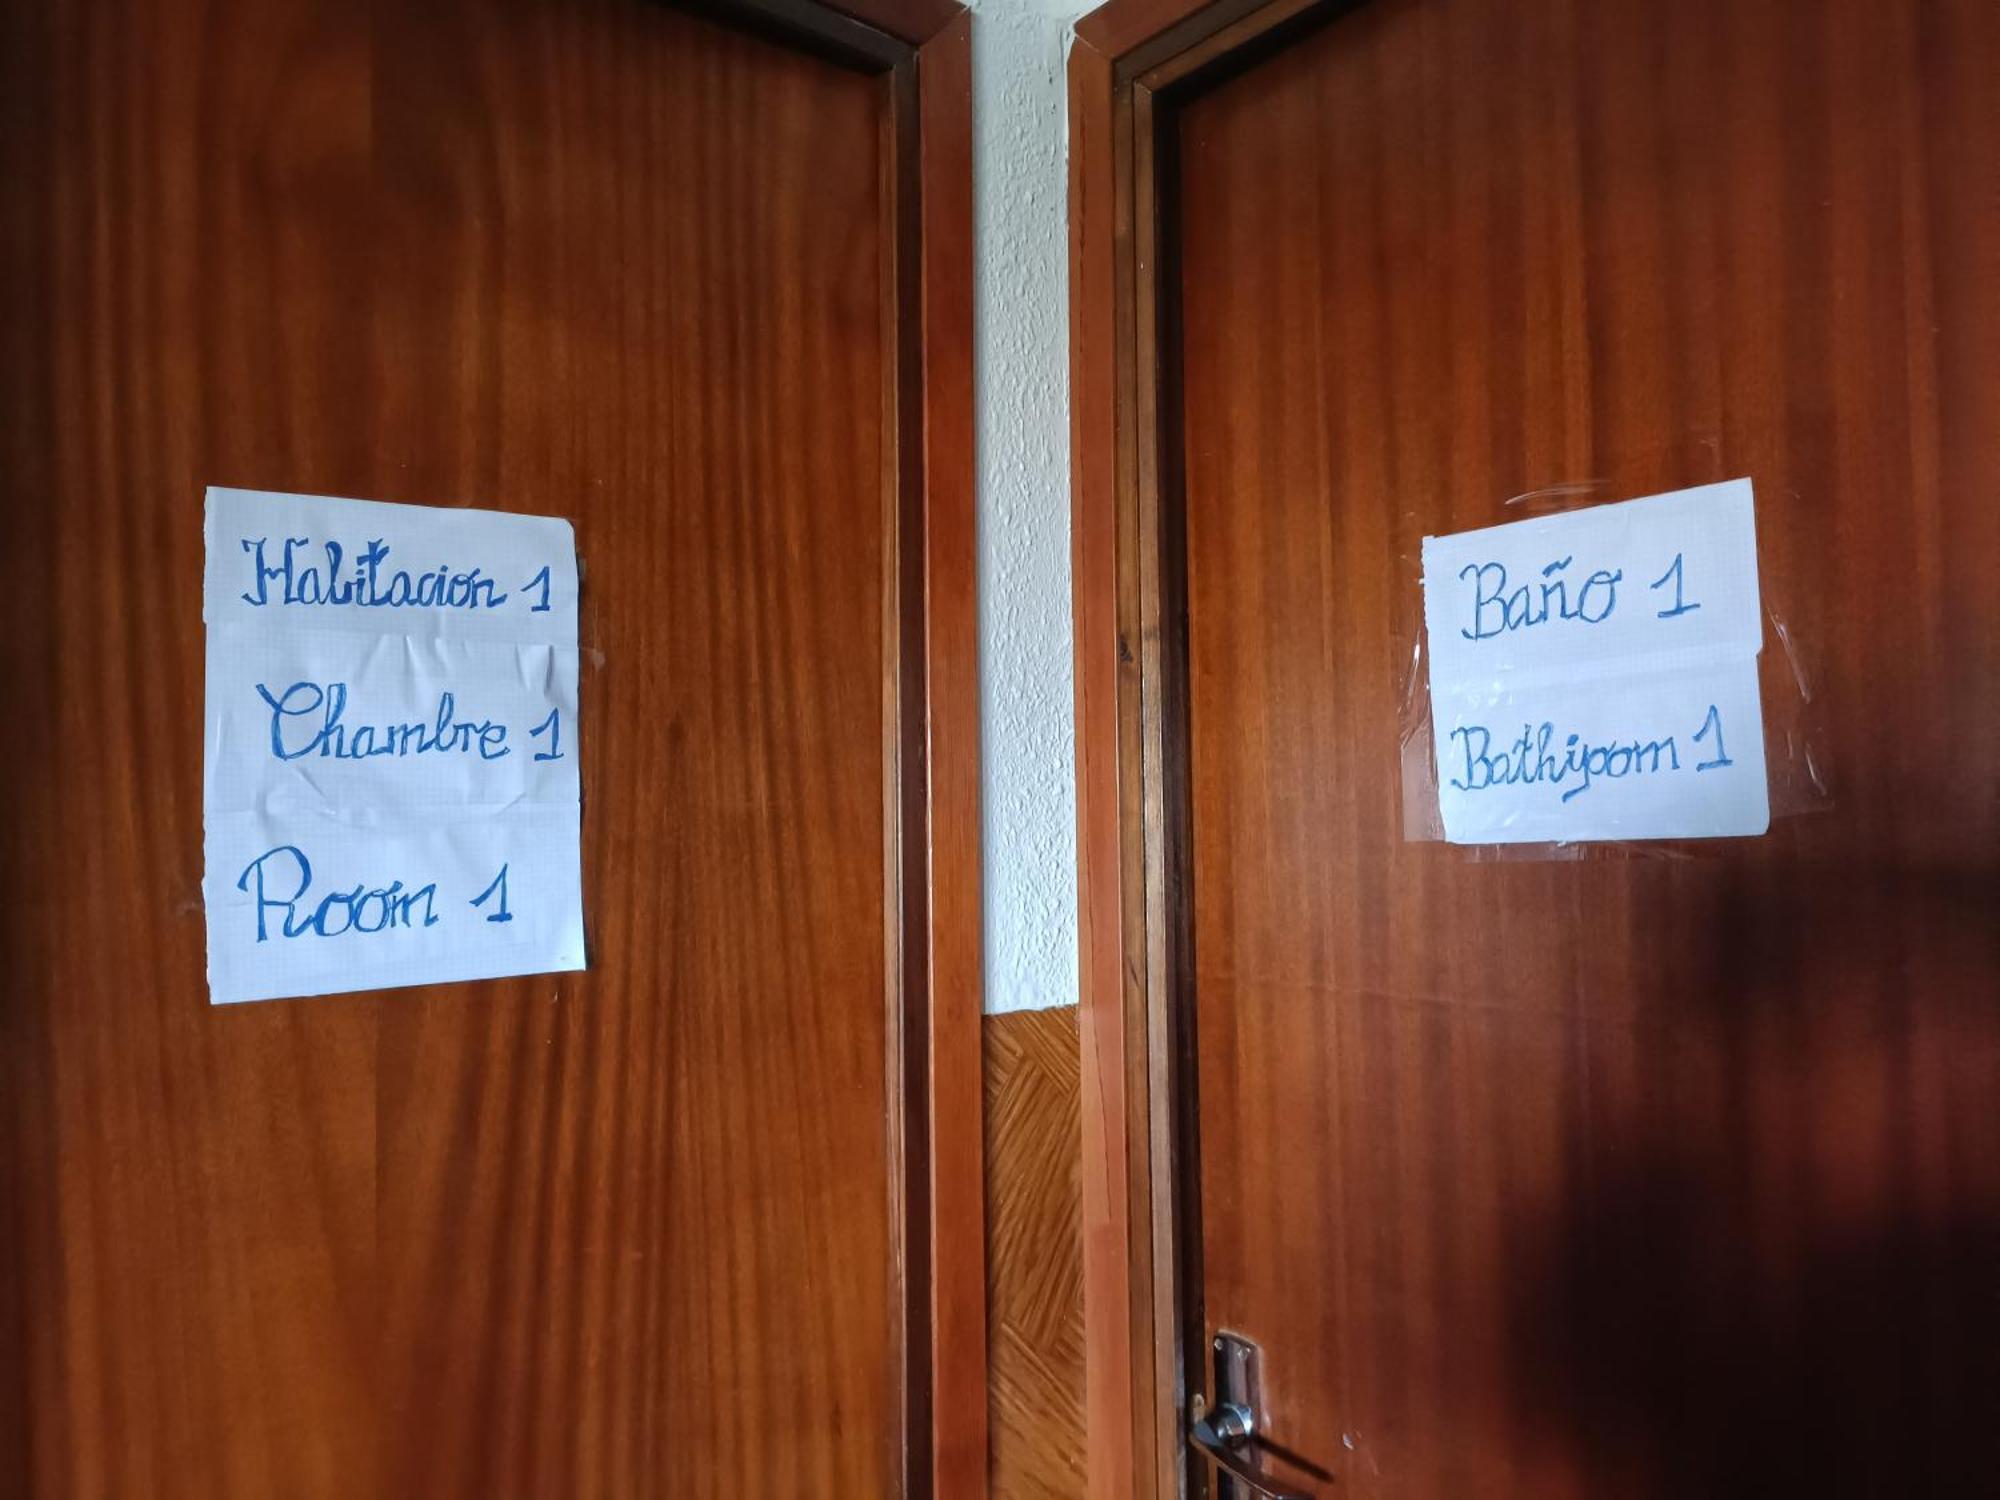 Habitacion 1
Chambre 1
Room 1
Baño 1
Bathyoom 1